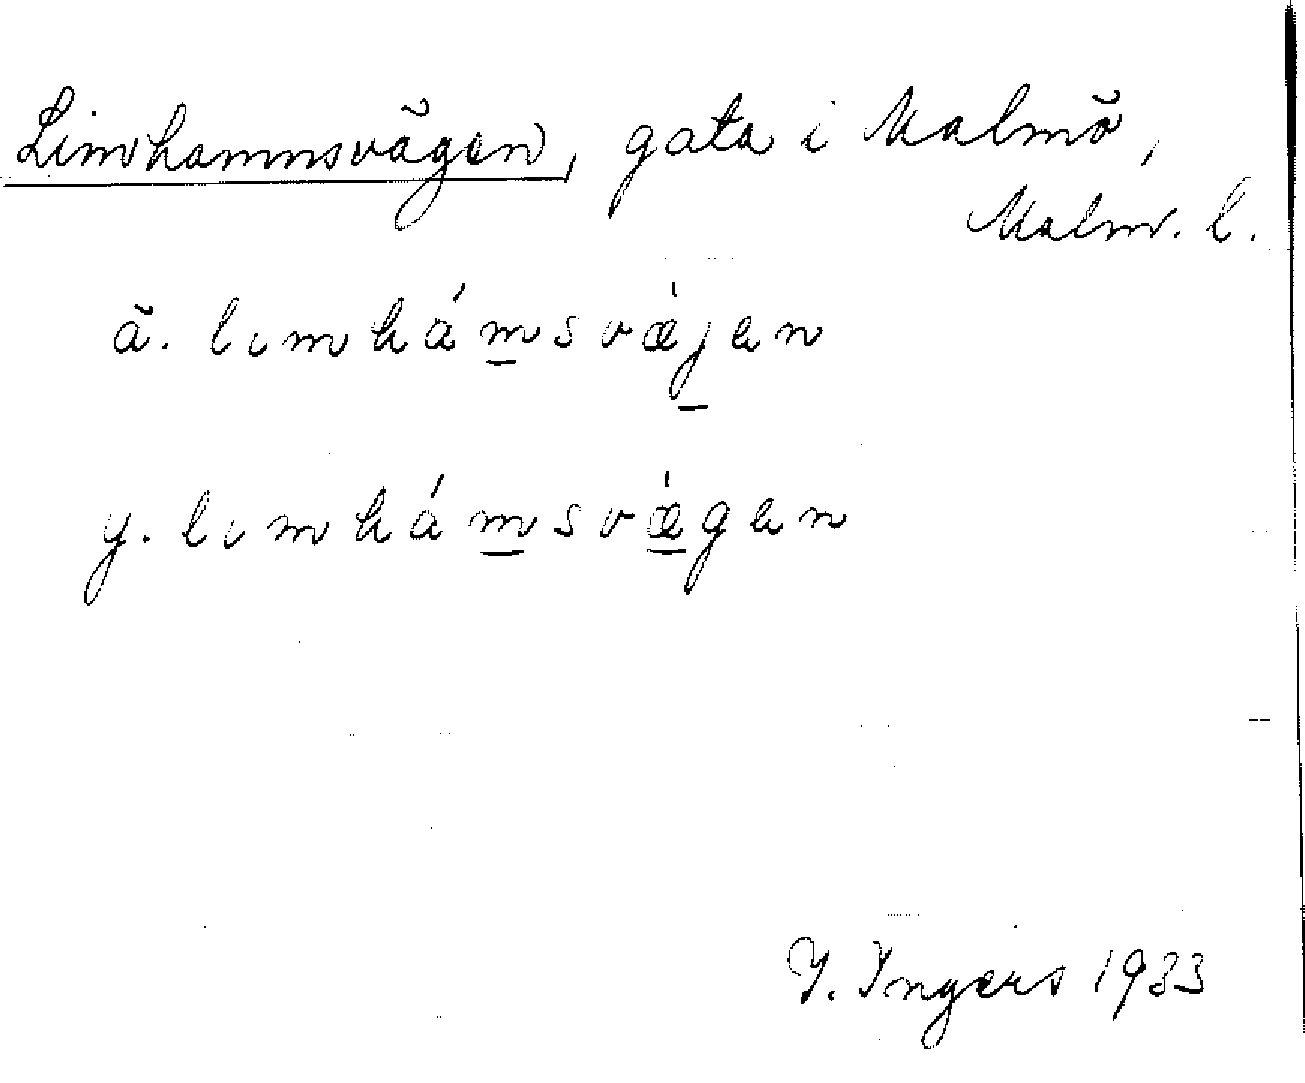 Limhamnsvägen, gata i Malmö,
Malm. l.
ä. lımhám̲svæ̀j̲en
y. lımhám̲svæ̲̀gen
I. Ingers 1933